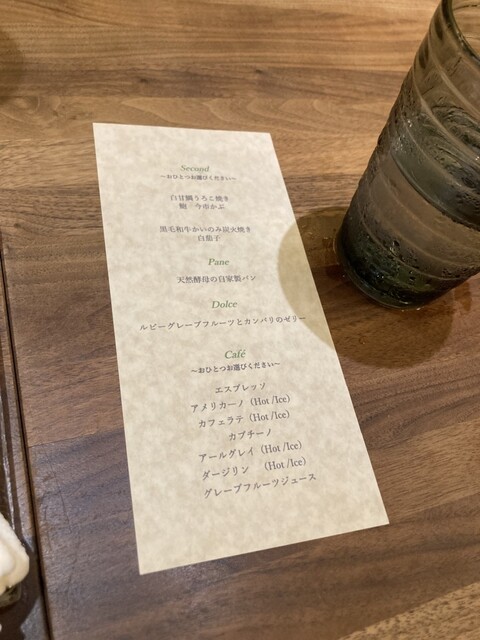 Second
～おひとつお選びください～
白甘鯛うろこ焼き
鮑　今市かぶ
黒毛和牛かいのみ炭火焼き
白茄子
Pane
天然酵母の自家製パン
Dolce
ルビーグレープフルーツとカンパリのゼリー
Café
～おひとつお選びください～
エスプレッソ
アメリカーノ（Hot /Ice）
カフェラテ（Hot /Ice）
カプチーノ
アールグレイ（Hot /Ice）
ダージリン　（Hot /Ice）
グレープフルーツジュース